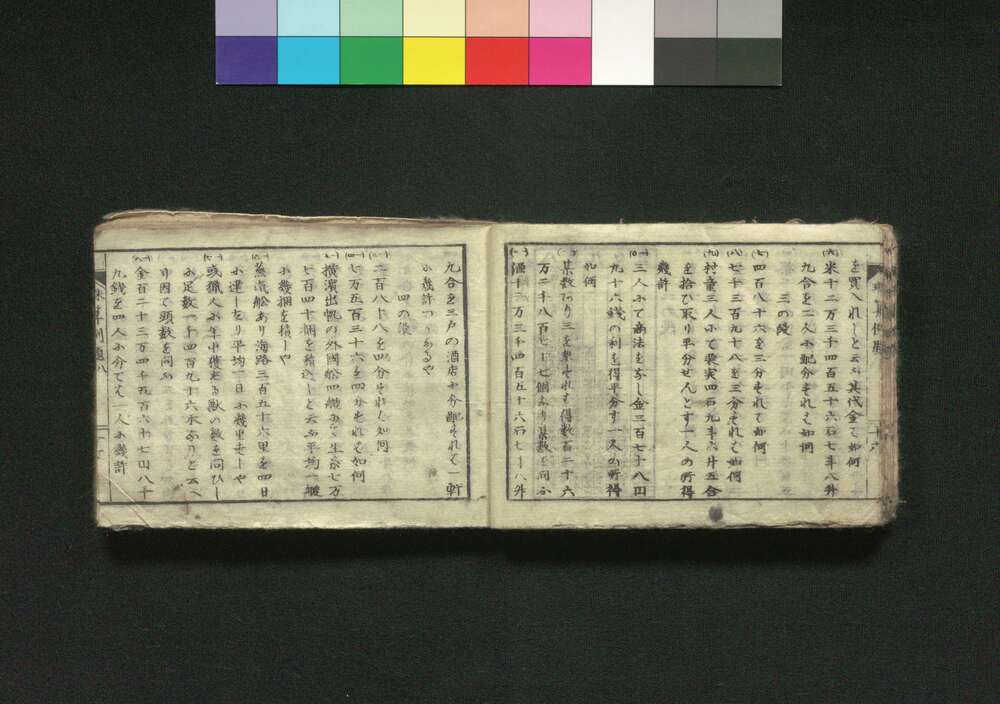 を買入れしと云ふ其代金ハ如何
(六) 米十二万三千四百五十六石七斗八升
九合を二人ニ配分すれバ如何
三の段
(七) 四百八十六を三分すれバ如何
(八) 七千三百九十八を三分すれバ如何
(九) 村童三人にて栗実四石九斗六升五合
を拾ひ取り平分せんとす一人の所得
幾許
三人にて商法を為し金三百七十八円
九十六銭の利を得平分す一人の所得
如何
某数あり三を乗すれバ得数百二十六
万二千八百七十七個なり某数を問ふ
酒十二万三千四百五十六石七斗八升
九合を三戸の酒店に分配すれバ一軒
に幾許づつなるや
四の段
二百八十八を四分すれバ如何
七万五百三十六を四分すれバ如何
横濱出帆の外國舩四艘あり生糸七万
七百四十捆を積込しと云ふ平均一艘
に幾捆を積しや
蒸汽舩あり海路三百五十六里を四日
に達せり平均一日に幾里走しや
或猟人に年中獲たる獣の数を問ひし
に足数一千四百九十六本ありと云へ
り因て頭数を問ふ
金百二十三万四千五百六十七円八十
九銭を四人に分てバ一人に幾許